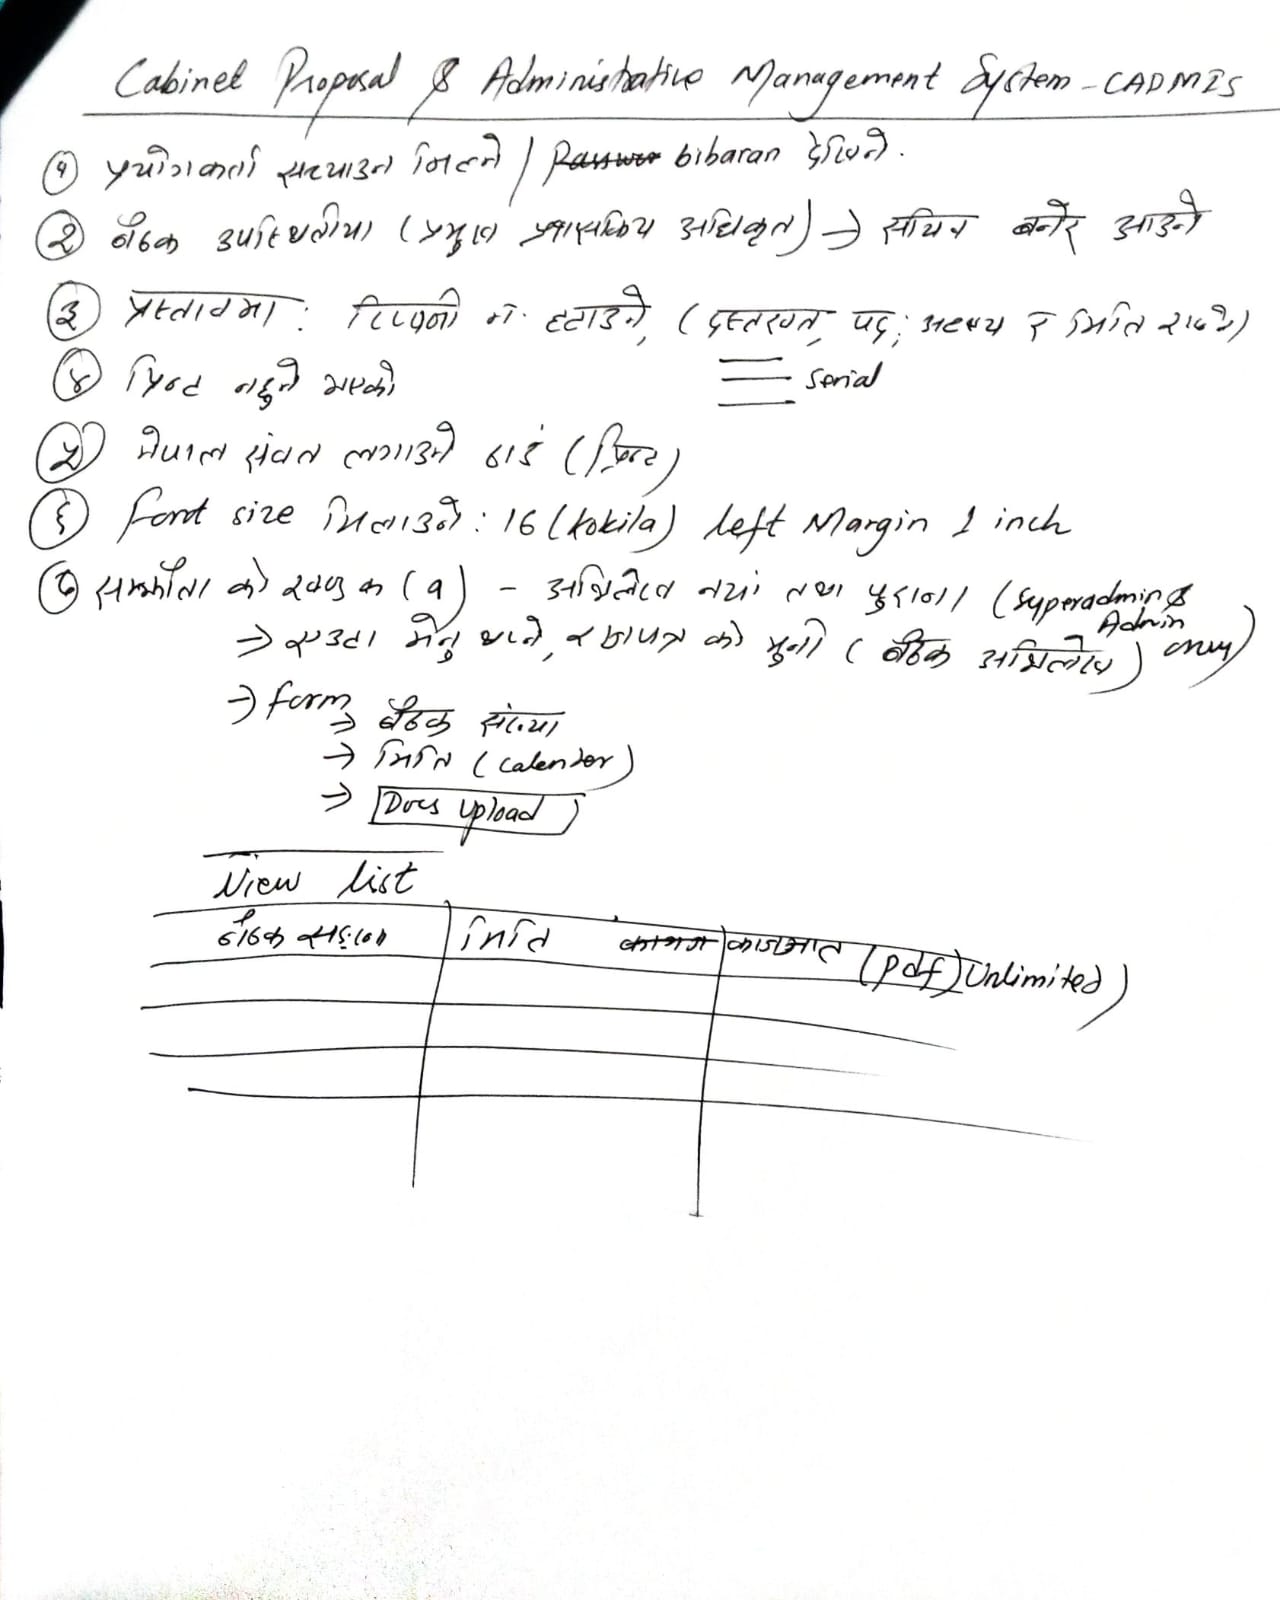 Cabinet Proposal & Administrative Management System - CADMIS
१ प्रयोगकर्ता सच्याउन मिल्ने / bibaran देखिने.
२ बैठक उपस्थितीमा (प्रमुख प्रशासकिय अधिकृत) → सचिव बनेर आउने
३ प्रस्तावमा : टिप्पणी नं. हटाउने, (दस्तखत, पद, र मिति राख्ने)
४ प्रिन्ट नहुने भएको Serial
५ नेपाल संवत लगाउने ठाउँ (प्रिन्ट)
६ font size मिलाउने : 16 (kokila) left Margin 1 inch
७ सम्झौता को खण्ड क (१) - अभिलेख नयाँ तथा पुरानो (superadmin & Admin only)
→ एउटा मेनु थप्ने, को मुनी (बैठक अभिलेख)
→ form
→ बैठक संख्या
→ मिति (calender)
→ Docs upload
View list
बैठक सङ्ख्या मिति कागजात (pdf) Unlimited)